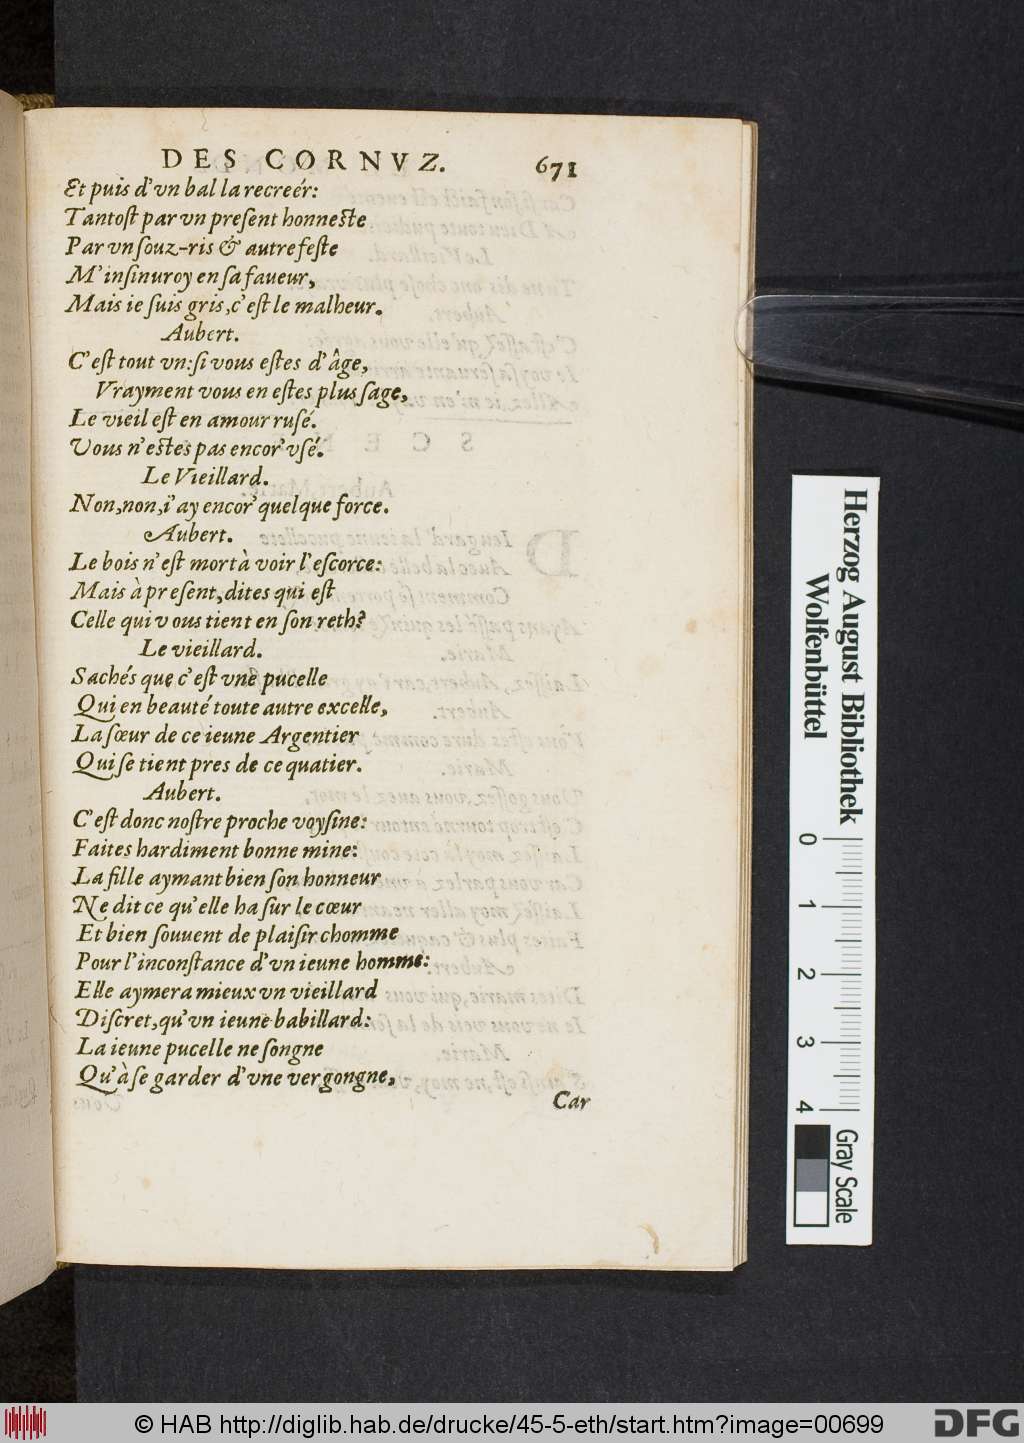 DES CORNVZ. 671
Et puis d'vn bal la recreér:
Tantoſt par vn preſent honneſte
Par vn ſouz-ris & autre feſte
M'inſinuroy en ſa faueur,
Mais ie ſuis gris, c'eſt le malheur.
Aubert.
C'eſt tout vn: ſi vous eſtes d'âge,
Vrayment vous en eſtes plus ſage,
Le vieil eſt en amour ruſé.
Vous n'eſtes pas encor' vſé.
Le Vieillard.
Non, non, i'ay encor' quelque force.
Aubert.
Le bois n'eſt mort à voir l'eſcorce:
Mais à preſent, dites qui eſt
Celle qui vous tient en ſon reth?
Le vieillard.
Sachés que c'eſt vne pucelle
Qui en beauté toute autre excelle,
La ſœur de ce ieune Argentier
Qui ſe tient pres de ce quatier.
Aubert.
C'eſt donc noſtre proche voyſine:
Faites hardiment bonne mine:
La fille aymant bien ſon honneur
Ne dit ce qu'elle ha ſur le cœur
Et bien ſouuent de plaiſir chomme
Pour l'inconſtance d'vn ieune homme:
Elle aymera mieux vn vieillard
Diſcret, qu'vn ieune babillard:
La ieune pucelle ne ſongne
Qu'à ſe garder d'vne vergongne,
Car
Herzog August Bibliothek
Wolfenbüttel
0 1 2 3 4
Gray Scale
© HAB http://diglib.hab.de/drucke/45-5-eth/start.htm?image=00699
DFG